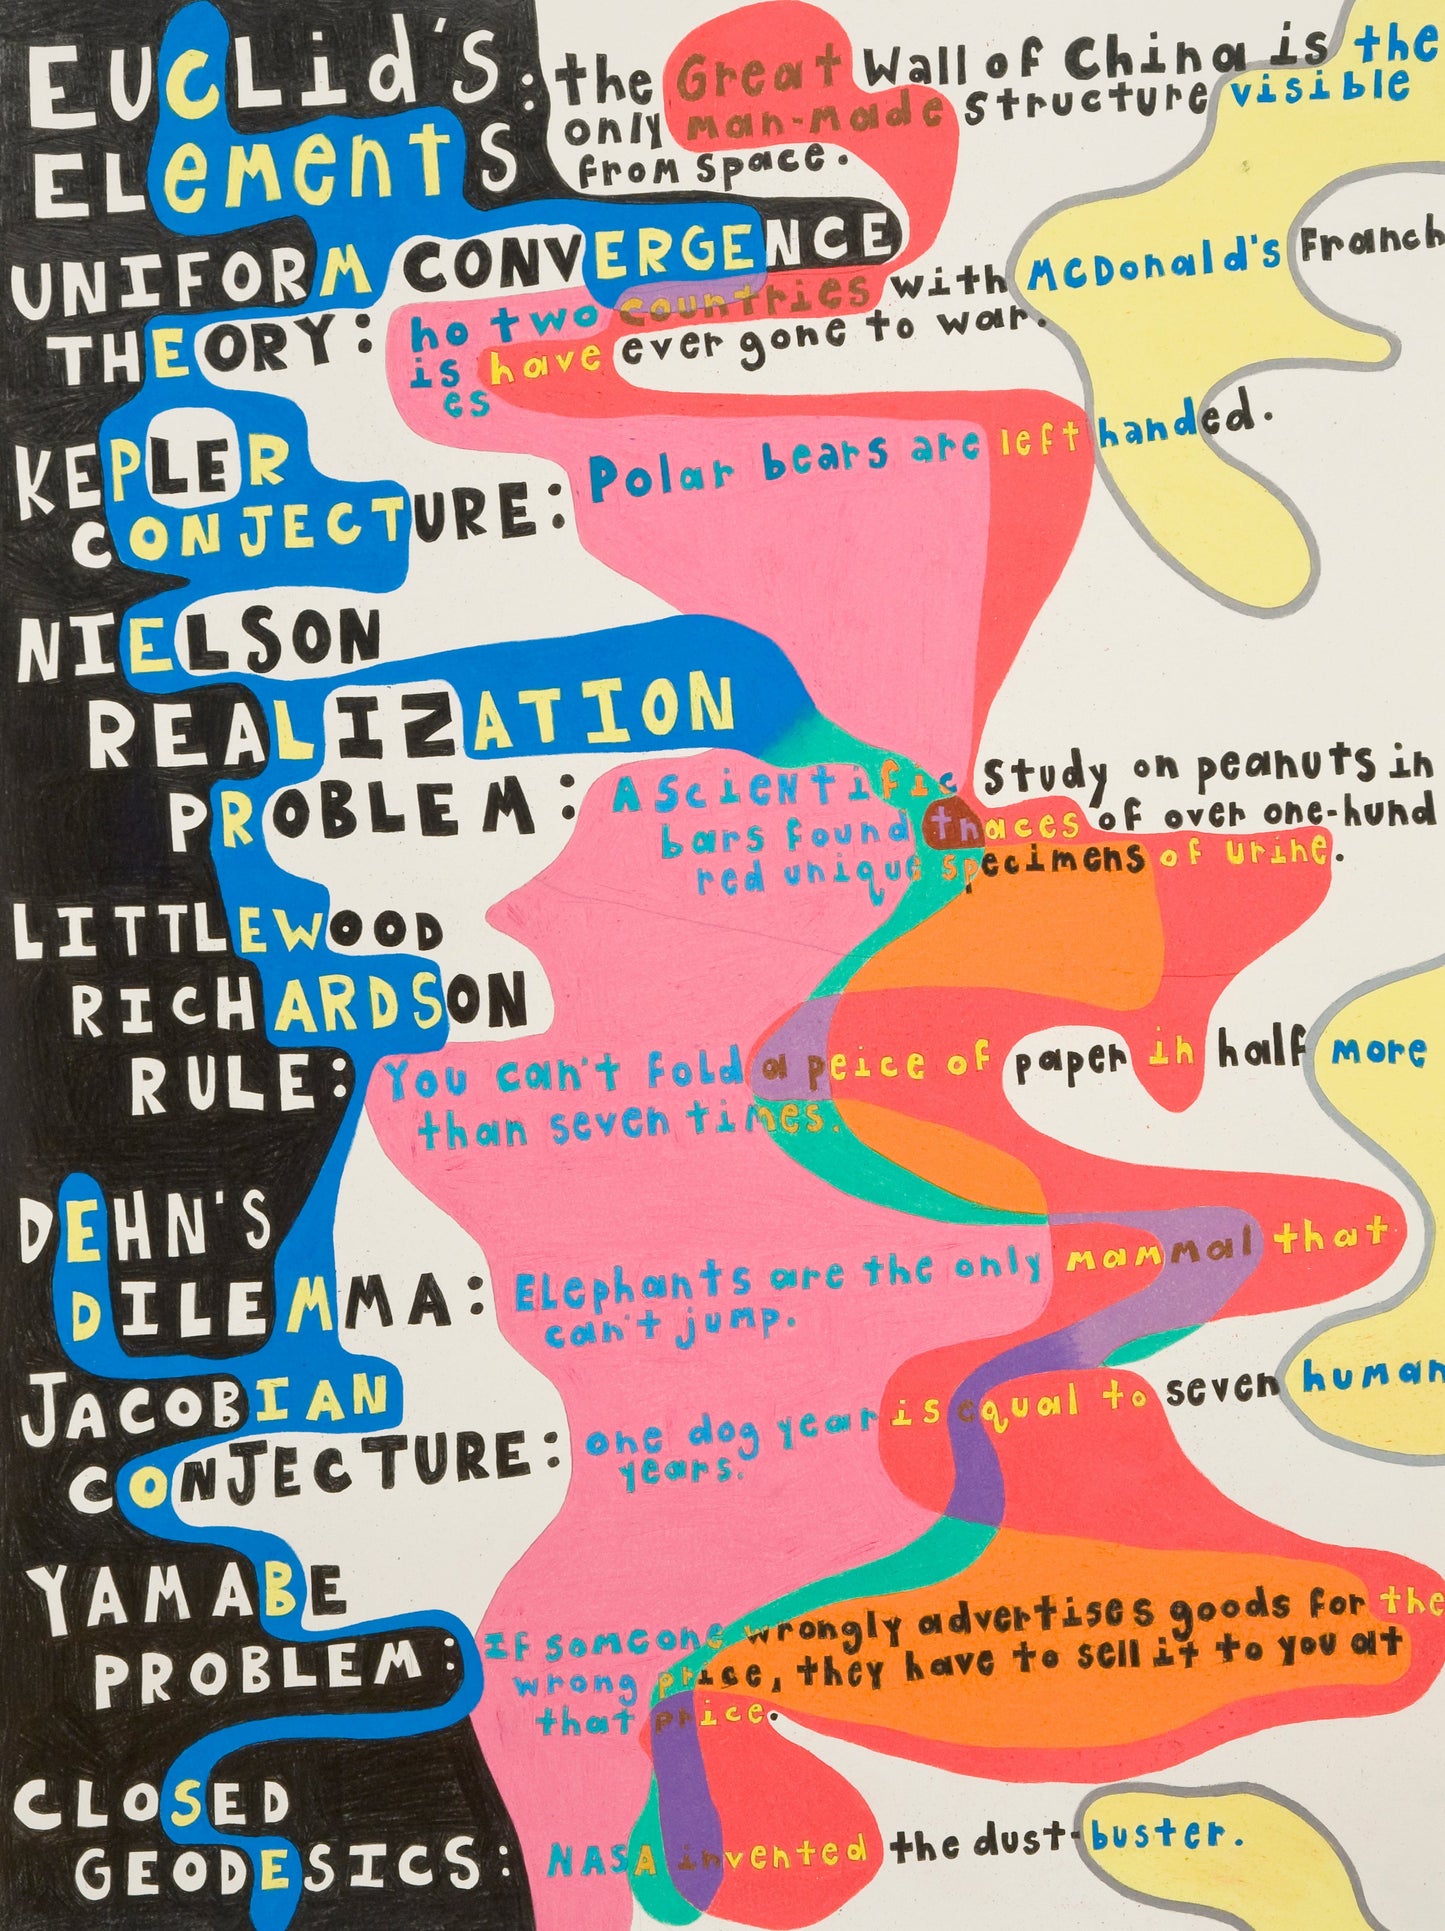 EUCLid's: the Great Wall of China is the
ELementS only man-made structure visible
from space.
UNIFORM CONVERGENCE
THEORY: no two countries with McDonald's Franch
is have ever gone to war.
es
KEPLER Polar bears are left handed.
CONJECTURE:
NIELSON
REALIZATION
PROBLEM: A scientific study on peanuts in
bars found traces of over one-hund
red unique specimens of urine.
LITTLEWOOD
RICHARDSON
RULE: You can't fold a peice of paper in half more
than seven times.
DEHN'S
DILEMMA: Elephants are the only mammal that
can't jump.
JACOBIAN
CONJECTURE: one dog year is equal to seven human
years.
YAMABE
PROBLEM: If someone wrongly advertises goods for the
wrong price, they have to sell it to you at
that price.
CLOSED
GEODESICS: NASA invented the dust-buster.